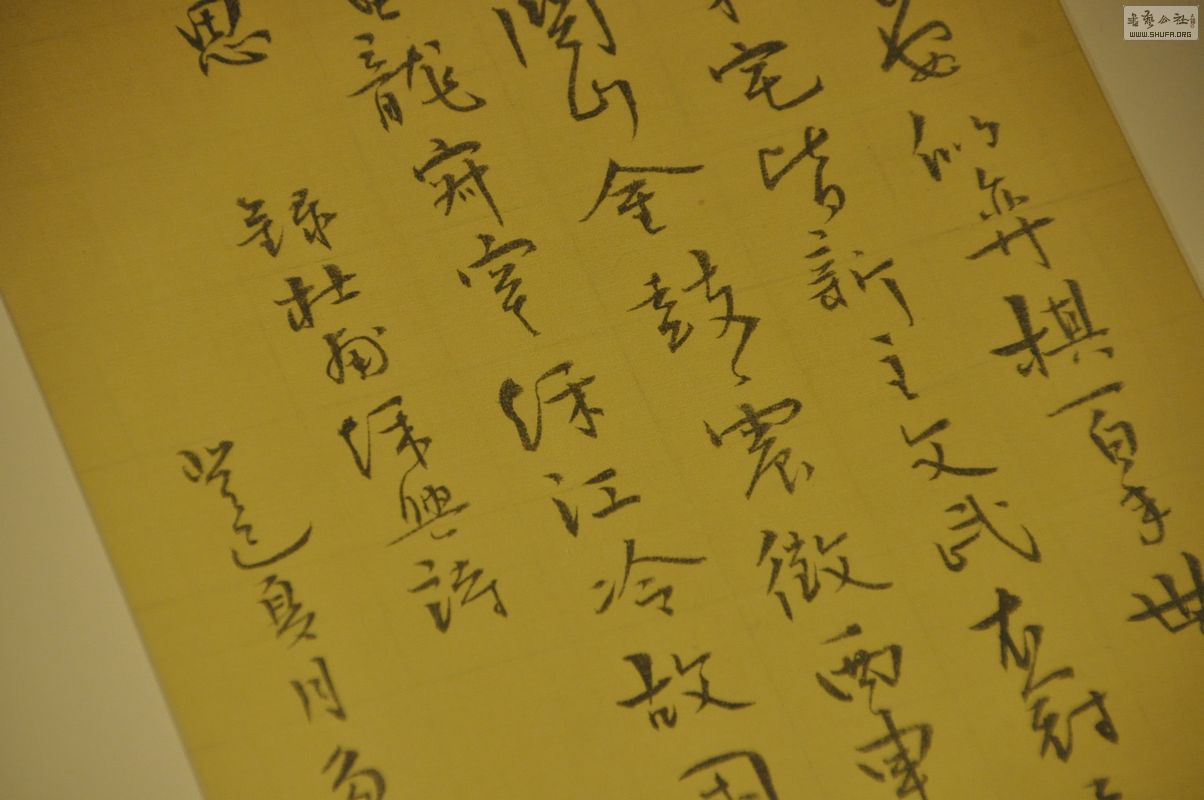 安似弈棋百年世
宅皆新主文武衣冠
關山金鼓震徵西車
龍寂寞秋江冷故國
思
錄杜甫秋興詩
癸巳夏月
書藝公社
WWW.SHUFA.ORG